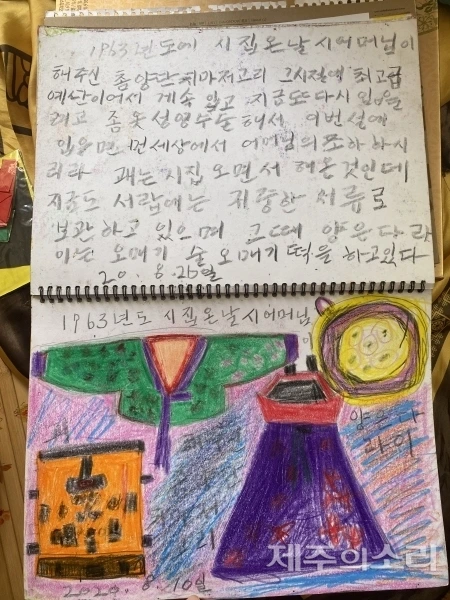 1963년도에 시집온날 시어머님이
해주신 총양단 치마저고리 그시절에 최고급
예산이어서 계속 입고 지금도 다시 입을
려고 좀 옷 성형수술 해서 이번 설에
입으면 먼세상에서 어머님의 조하 하시
리라 궤는 시집 오면서 해온 것인데
지금도 서랍에는 귀중한 서류로
보관하고 있으며 그때 양은 다라
이는 오매기 술 오매기 떡을 하고있다
20. 8. 26일
1963년도 시집온날 시어머님
이
양은 다
라이
궤
2020. 8. 10일
제주의소리